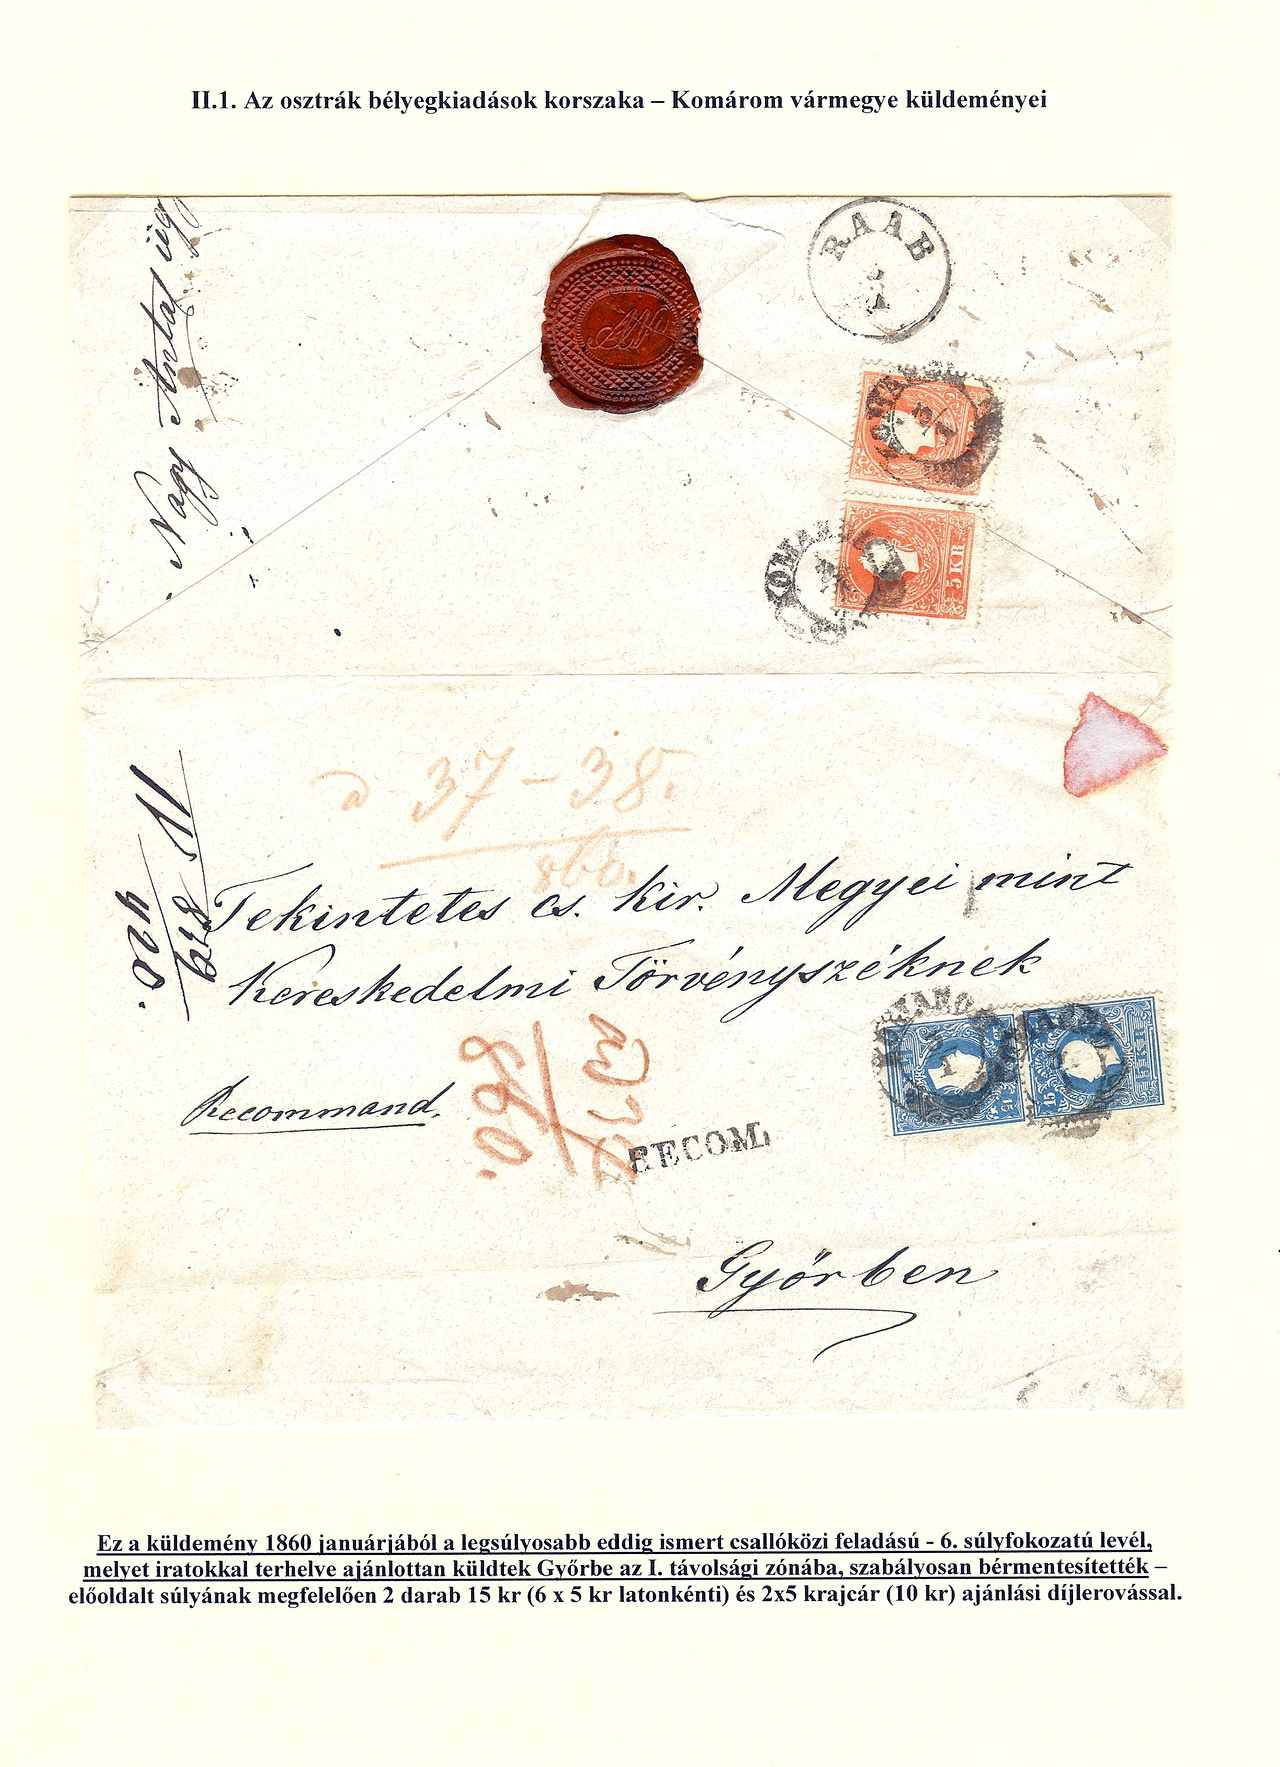 II.1. Az osztrák bélyegkiadások korszaka – Komárom vármegye küldeményei
Nagy Antal
RAAB
5 KR
37 – 38.
860.
Tekintetes cs. kir. Megyei mint
Kereskedelmi Törvényszéknek
Recommand.
860.
RECOM.
Győrben
Ez a küldemény 1860 januárjából a legsúlyosabb eddig ismert csallóközi feladású - 6. súlyfokozatú levél,
melyet iratokkal terhelve ajánlottan küldtek Győrbe az I. távolsági zónába, szabályosan bérmentesítették –
előoldalt súlyának megfelelően 2 darab 15 kr (6 x 5 kr latonkénti) és 2x5 krajcár (10 kr) ajánlási díjlerovással.